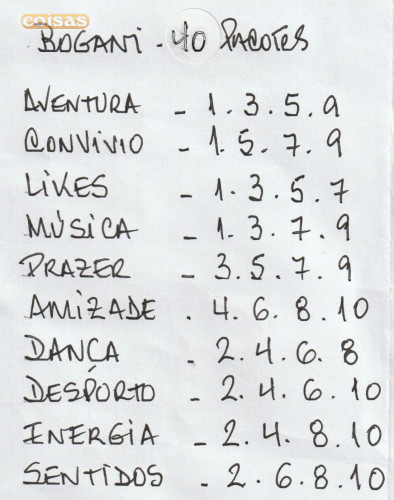 coisas
BOGANI - 40 PACOTES
AVENTURA - 1.3.5.9
CONVÍVIO - 1.5.7.9
LIKES - 1.3.5.7
MÚSICA - 1.3.7.9
PRAZER - 3.5.7.9
AMIZADE . 4.6.8.10
DANÇA - 2.4.6.8
DESPORTO - 2.4.6.10
ENERGIA - 2.4.8.10
SENTIDOS - 2.6.8.10